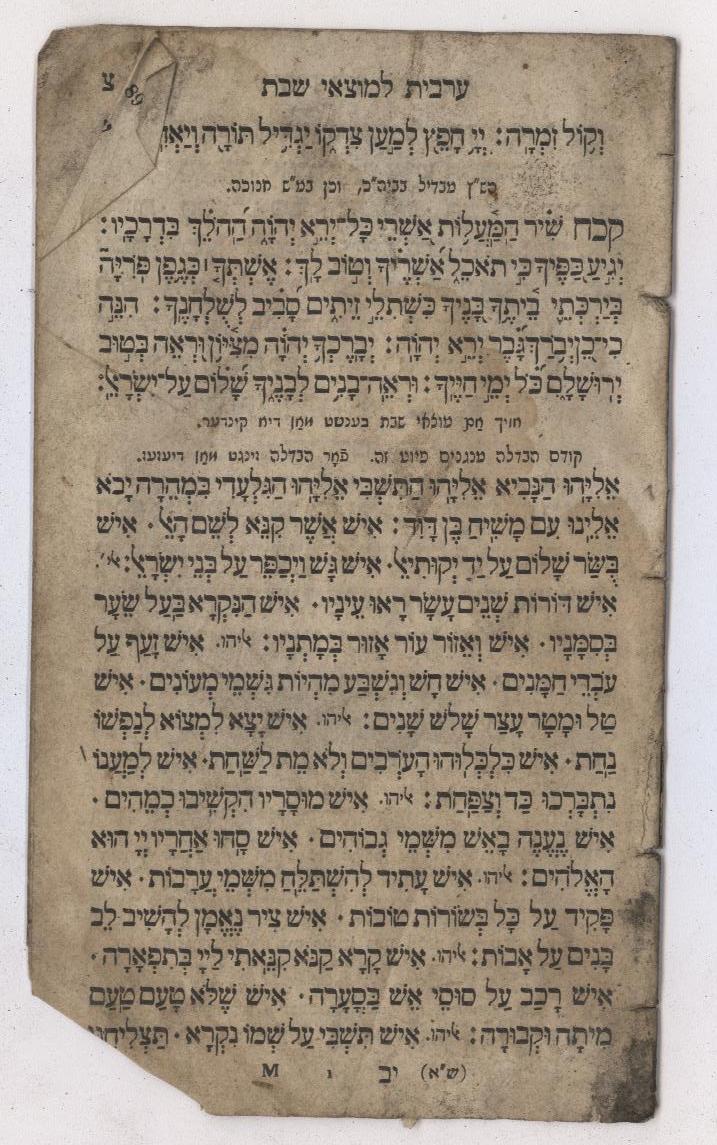 ערבית למוצאי שבת צ
89
וְקוֹל זִמְרָה: יְיָ חָפֵץ לְמַעַן צִדְקוֹ יַגְדִּיל תּוֹרָה וְיַאְדִּ
הש״ץ מבדיל בביה״כ, וכן במ״ש חנוכה.
קכח שִׁיר הַמַּעֲלוֹת אַשְׁרֵי כָּל־יְרֵא יְהוָֹה הַהֹלֵךְ בִּדְרָכָיו:
יְגִיעַ כַּפֶּיךָ כִּי תֹאכֵל אַשְׁרֶיךָ וְטוֹב לָךְ: אֶשְׁתְּךָ כְּגֶפֶן פֹּרִיָּה
בְּיַרְכְּתֵי בֵיתֶךָ בָּנֶיךָ כִּשְׁתִלֵי זֵיתִים סָבִיב לְשֻׁלְחָנֶךָ: הִנֵּה
כִי־כֵן יְבֹרַךְ גָּבֶר יְרֵא יְהוָֹה: יְבָרֶכְךָ יְהוָֹה מִצִּיּוֹן וּרְאֵה בְּטוּב
יְרוּשָׁלָםִ כֹּל יְמֵי חַיֶּיךָ: וּרְאֵה־בָנִים לְבָנֶיךָ שָׁלוֹם עַל־יִשְׂרָאֵל:
אויך אם מוצאי שבת בענשט מאן דיא קינדער.
קודם הבדלה מנגנים פיוט זה. פֿאר הבדלה זינגט מאן דיעזעז.
אֵלִיָּהוּ הַנָּבִיא אֵלִיָּהוּ הַתִּשְׁבִּי אֵלִיָּהוּ הַגִּלְעָדִי בִּמְהֵרָה יָבֹא
אֵלֵינוּ עִם מָשִׁיחַ בֶּן דָּוִד: אִישׁ אֲשֶׁר קִנֵּא לְשֵׁם הָאֵל. אִישׁ
בֻּשַּׂר שָׁלוֹם עַל יַד יְקוּתִיאֵל. אִישׁ גָּשׁ וַיְכַפֵּר עַל בְּנֵי יִשְׂרָאֵל: א׳.
אִישׁ דּוֹרוֹת שְׁנֵים עָשָׂר רָאוּ עֵינָיו. אִישׁ הַנִּקְרָא בַּעַל שֵׂעָר
בְּסִמָּנָיו. אִישׁ וְאֵזוֹר עוֹר אָזוּר בְּמָתְנָיו: אליהו. אִישׁ זָעַף עַל
עֹבְדֵי חַמָּנִים. אִישׁ חָשׁ וְנִשְׁבַּע מִהְיוֹת גִּשְׁמֵי מְעוֹנִים. אִישׁ
טַל וּמָטָר עָצַר שָׁלֹשׁ שָׁנִים: אליהו. אִישׁ יָצָא לִמְצוֹא לְנַפְשׁוֹ
נַחַת. אִישׁ כִּלְכְּלוּהוּ הָעֹרְבִים וְלֹא מֵת לַשַּׁחַת. אִישׁ לְמַעֲנוֹ
נִתְבָּרְכוּ כַּד וְצַפַּחַת: אליהו. אִישׁ מוּסָרָיו הִקְשִׁיבוּ כְמֵהִים.
אִישׁ נֶעֱנָה בָאֵשׁ מִשְּׁמֵי גְבוֹהִים. אִישׁ סָחוּ אַחֲרָיו יְיָ הוּא
הָאֱלֹהִים: אליהו. אִישׁ עָתִיד לְהִשְׁתַּלֵּחַ מִשְּׁמֵי עֲרָבוֹת. אִישׁ
פָּקִיד עַל כָּל בְּשׂוֹרוֹת טוֹבוֹת. אִישׁ צִיר נֶאֱמָן לְהָשִׁיב לֵב
בָּנִים עַל אָבוֹת: אליהו. אִישׁ קָרָא קַנֹּא קִנֵּאתִי לַיְיָ בְּתִפְאָרָה.
אִישׁ רָכַב עַל סוּסֵי אֵשׁ בַּסְּעָרָה. אִישׁ שֶׁלֹּא טָעַם טַעַם
מִיתָה וּקְבוּרָה: אליהו. אִישׁ תִּשְׁבִּי עַל שְׁמוֹ נִקְרָא. תַּצְלִיחֵנוּ
(ש״א) יב ו M